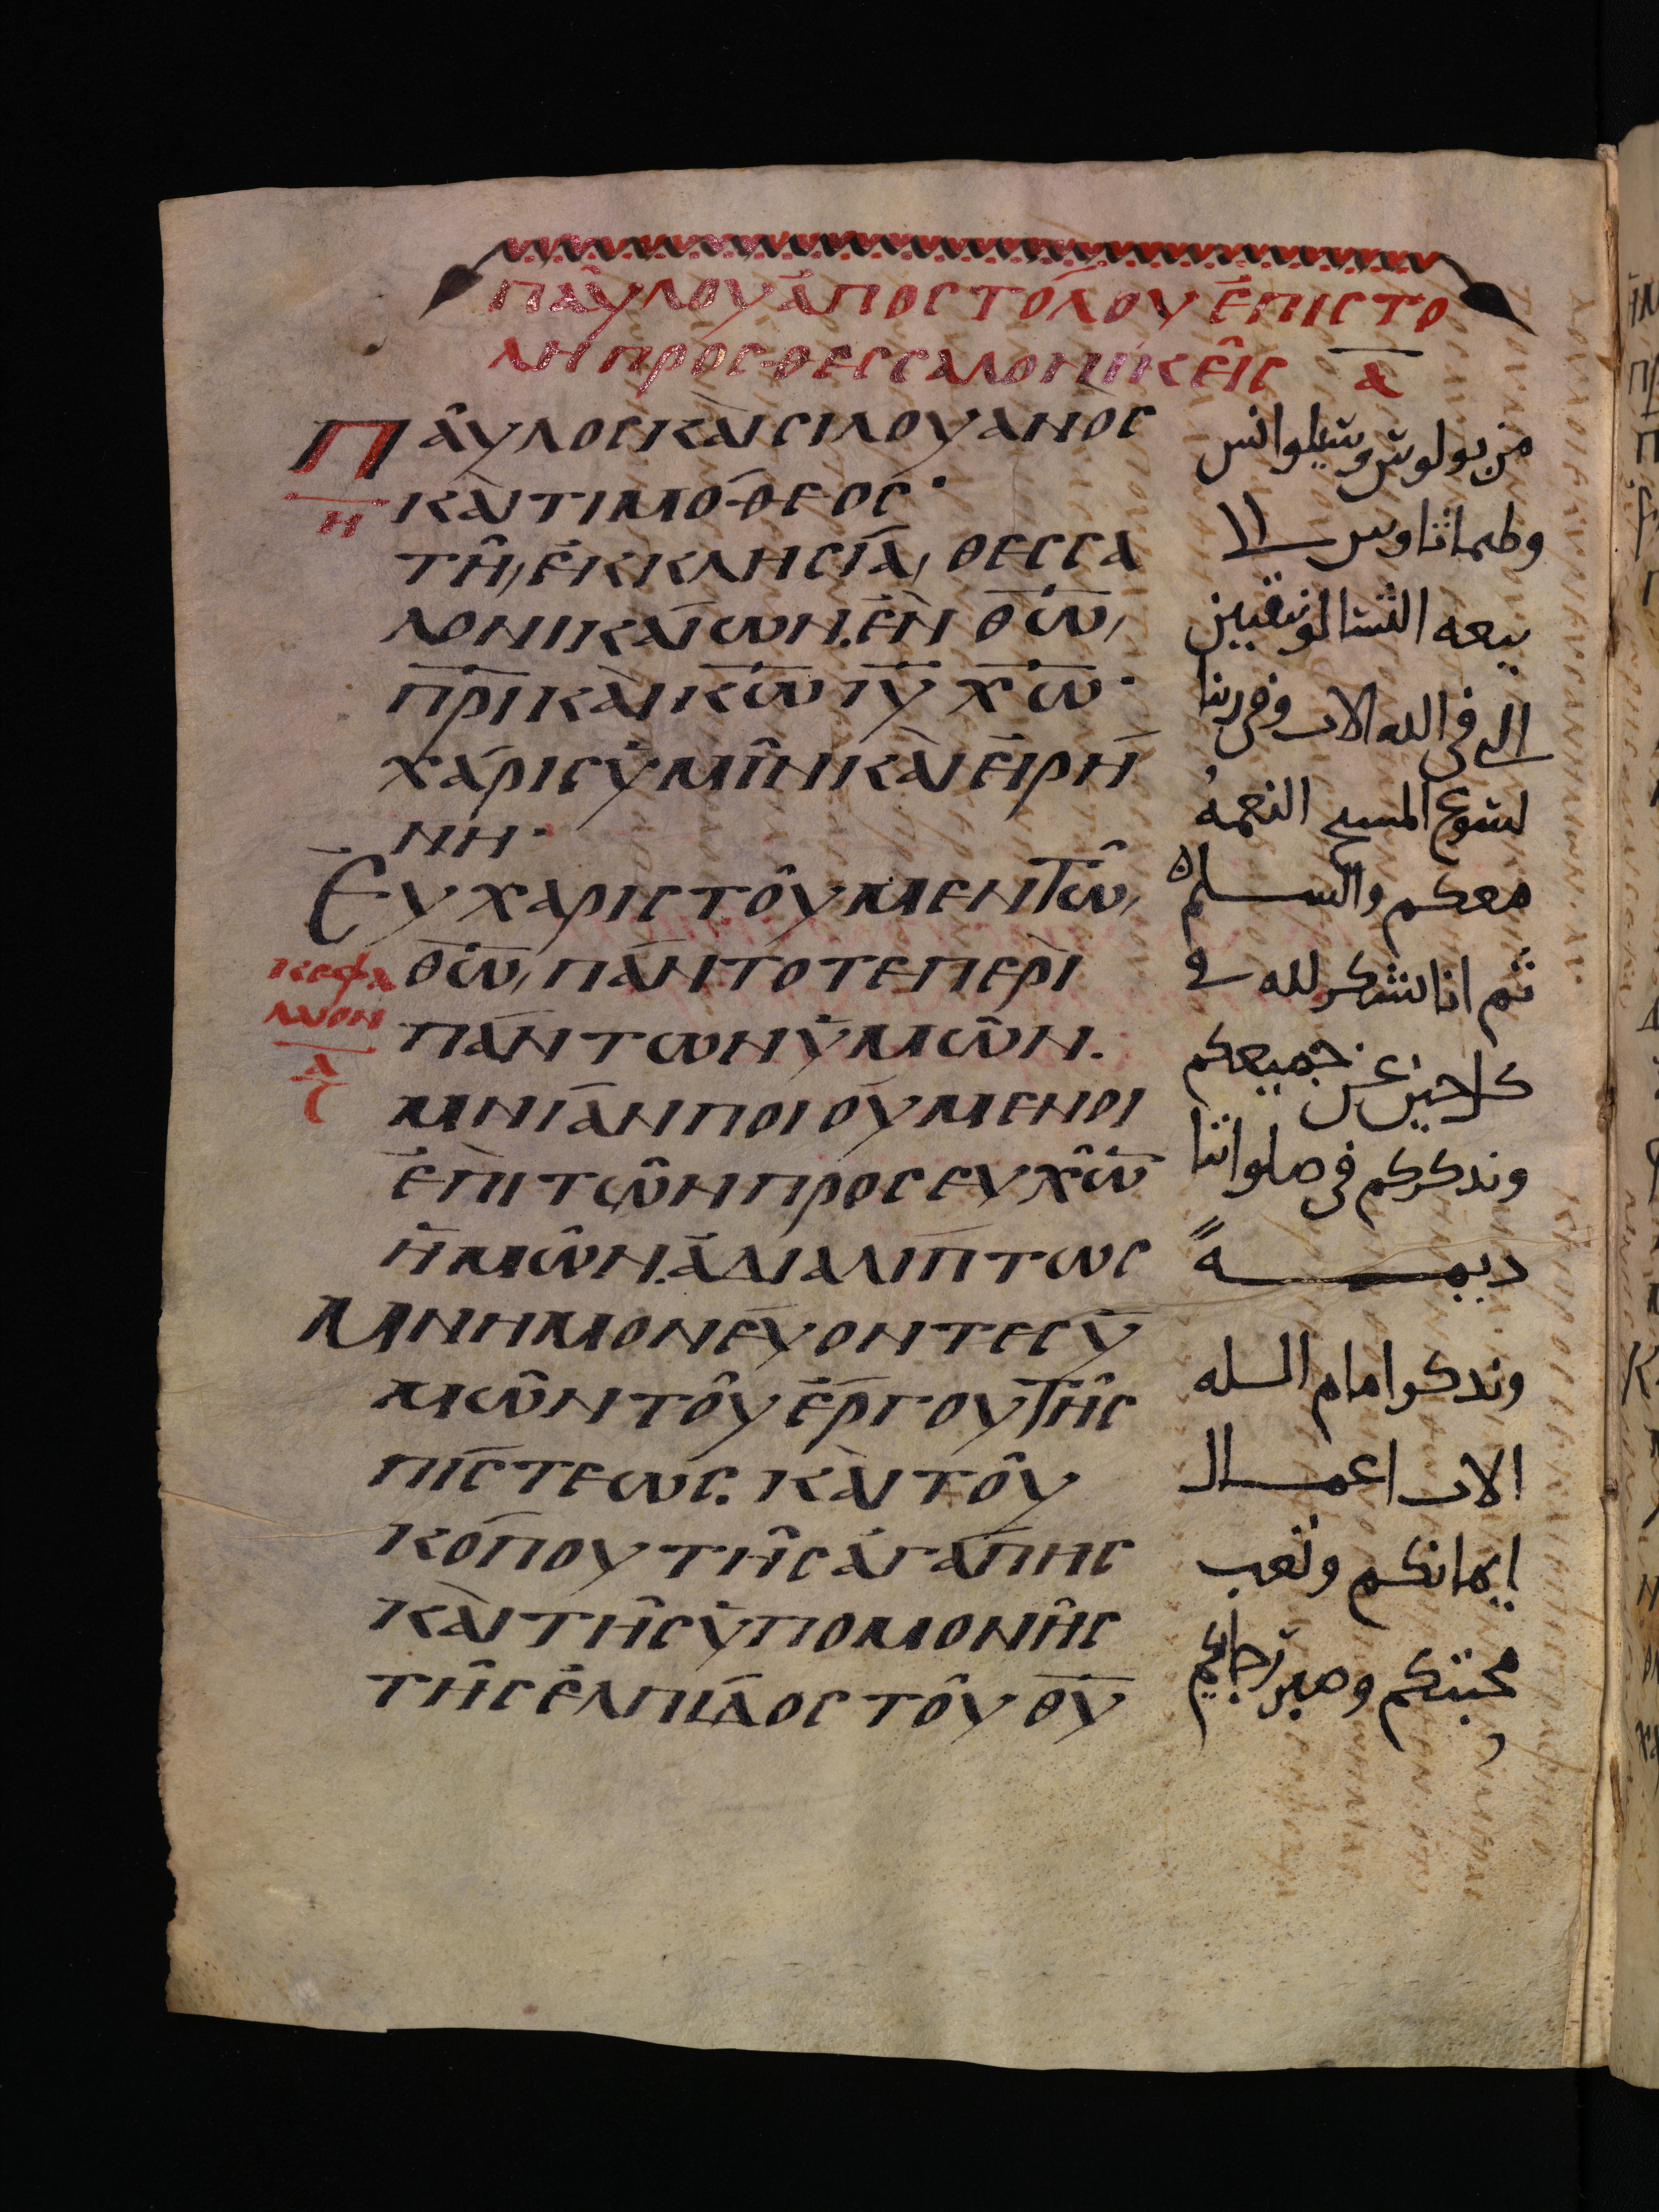 ΠΑΎΛΟΥ ἈΠΟCΤΌΛΟΥ ἘΠΙCΤΟ
ΛΗ ΠΡΟC ΘΕCCΑΛΟΝΙΚΕῖC Α̅
ΠΑῦΛΟC ΚΑῚ CΙΛΟΥΑΝῸC
Η̅
ΚΑῚ ΤΙΜΌΘΕΟC·
ΤΗ͂, ἘΚΚΛΗCΊΑ, ΘΕCCΑ
ΛΟΝΙΚΑΊωΝ. ἘΝ Θ̅ω̅,
Π̅Ρ̅Ι̅ ΚΑῚ Κ̅ω̅ Ι̅Υ̅ Χ̅ω̅·
ΧΆΡΙC ὙΜῖΝ ΚΑῚ ΕἸΡΉ
ΝΗ·
ΕΥΧΑΡΙCΤΟῦΜΕΝ Τῶ,
Θ̅ω̅, ΠΆΝΤΟΤΕ ΠΕΡῚ
ΚΕΦΑ
ΛΑΙΟΝ
Α̅
ΠΆΝΤωΝ ὙΜῶΝ.
ΜΝΊΑΝ ΠΟΙΟΎΜΕΝΟΙ
ἘΠῚ ΤῶΝ ΠΡΟCΕΥΧῶ̅
ἩΜῶΝ. ἈΔΙΑΛΙΠΤωC
ΜΝΗΜΟΝΕΎΟΝΤΕC Ὑ
ΜῶΝ ΤΟῦ ἜΡΓΟΥ ΤῆC
ΠΊCΤΕωC. ΚΑῚ ΤΟῦ
ΚΌΠΟΥ ΤῆC ἈΓΆΠΗC
ΚΑῚ ΤῆC ὙΠΟΜΟΝῆC
ΤῆC ἘΛΠΊΔΟC ΤΟῦ Θ̅Υ̅
من بولوس وسيلوانس
وطيماثاوس الى
بيعه التسالونيقيين
الى فى الله الاب وفى ربنا
يسوع المسيح النعمه
معكم والسلم
ثم انا نشكر لله فى
كل حين عن جميعكم
وندكركم فى صلواتنا
ديمــةً
وندكر امام الله
الاب اعمال
ايمانكم وتعب
محبتكم وصبر رجايكم